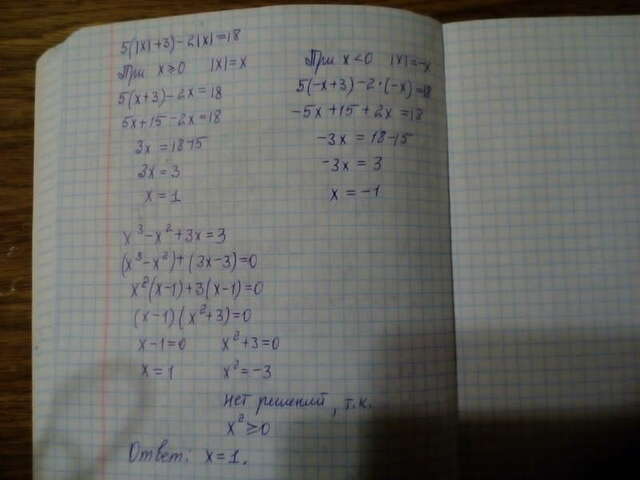 5(|x|+3)-2|x|=18
При x≥0 |x|=x
5(x+3)-2x=18
5x+15-2x=18
3x=18-15
3x=3
x=1
При x<0 |x|=-x
5(-x+3)-2·(-x)=18
-5x+15+2x=18
-3x=18-15
-3x=3
x=-1
x³-x²+3x=3
(x³-x²)+(3x-3)=0
x²(x-1)+3(x-1)=0
(x-1)(x²+3)=0
x-1=0 x²+3=0
x=1 x²=-3
нет решений, т.к.
x²≥0
Ответ: x=1.